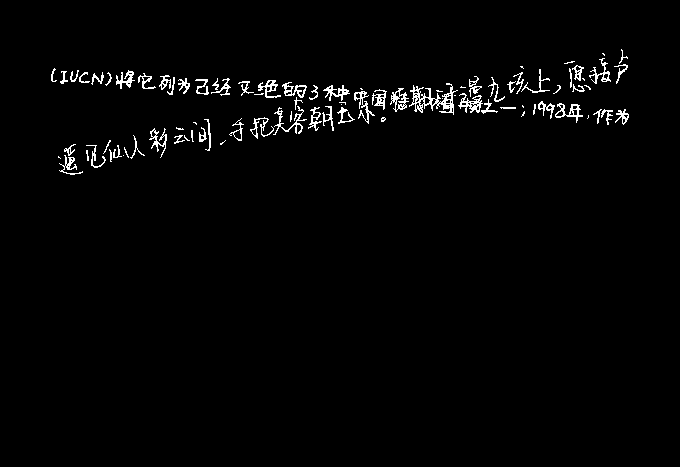 (IUCN)将它列为已经灭绝的3种中国特有植物之一;1998年,作为
遥见仙人彩云间,手把芙蓉朝玉京。期漫九垓上,愿接卢